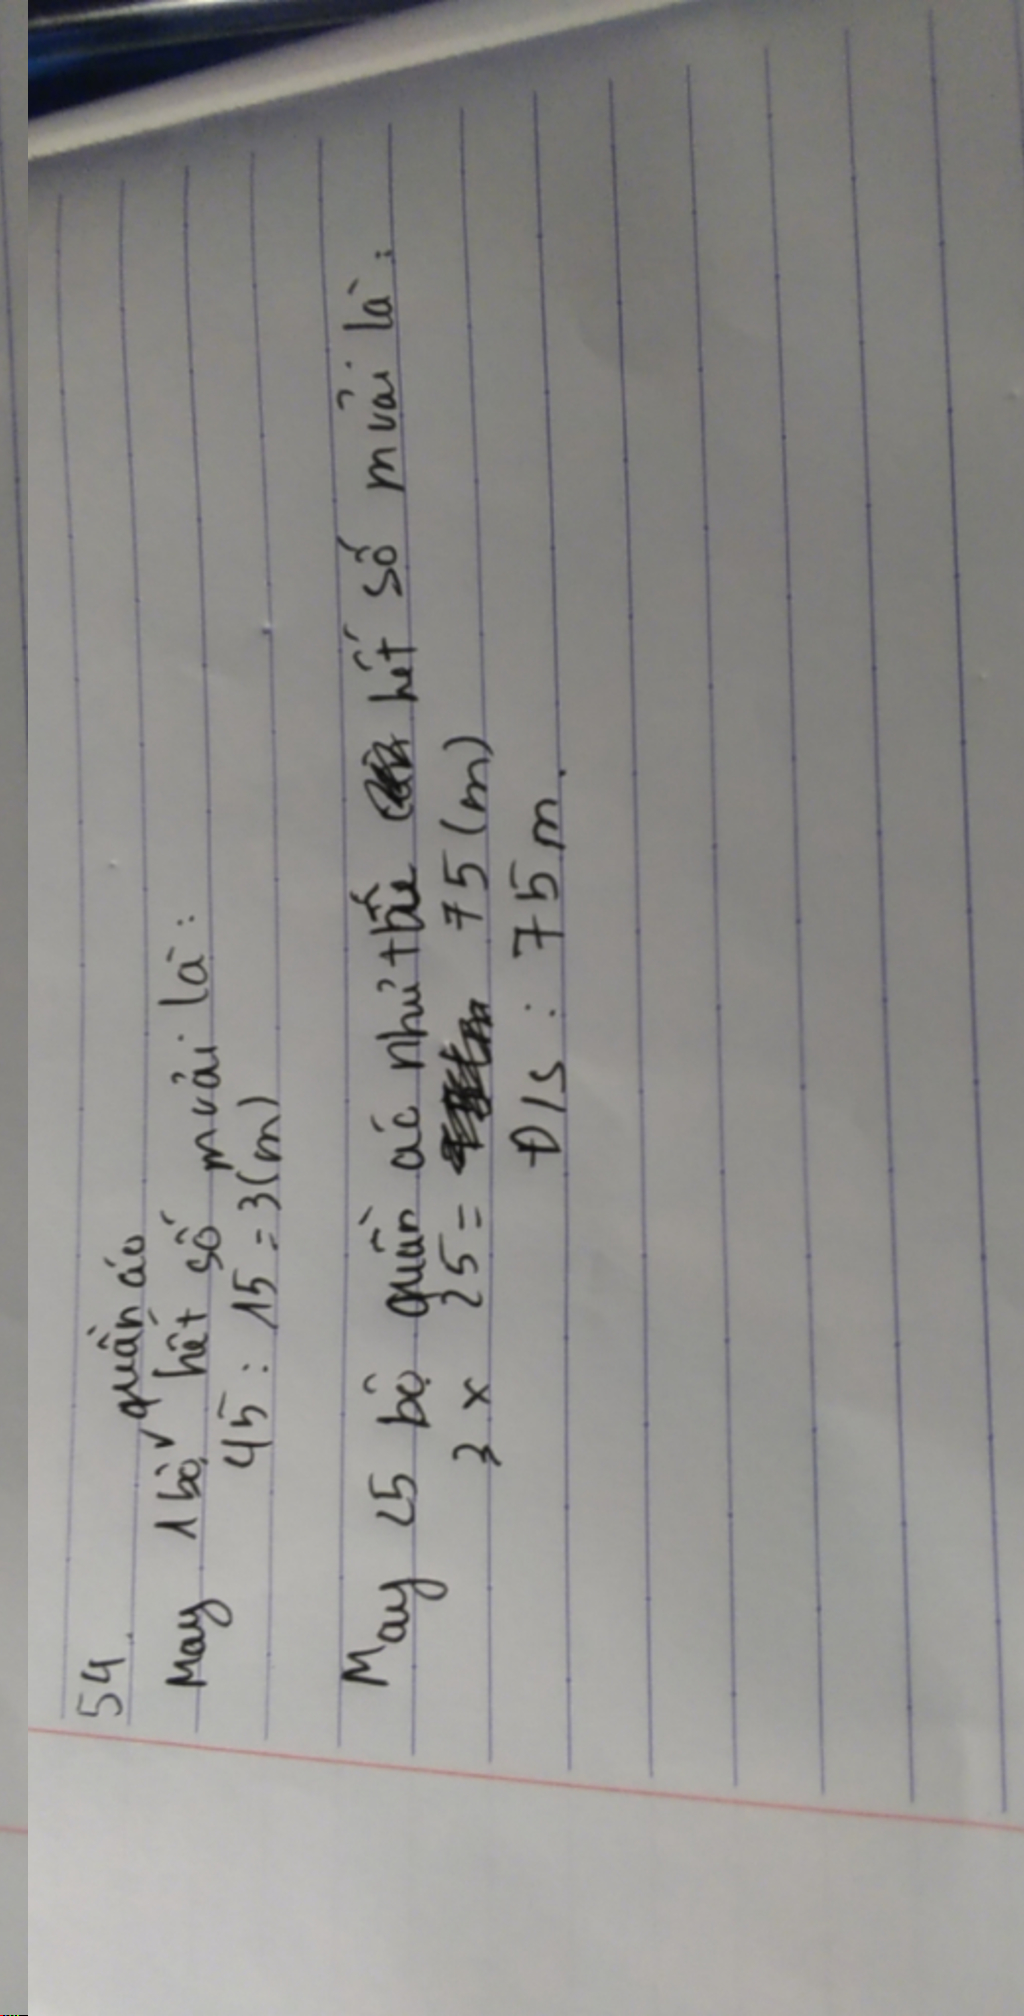 54.
quần áo
May 1 bộ hết số m vải là:
45 : 15 = 3(m)
May 25 bộ quần áo như thế hết số m vải là:
3 x 25 = 75 (m)
Đ/S : 75m.